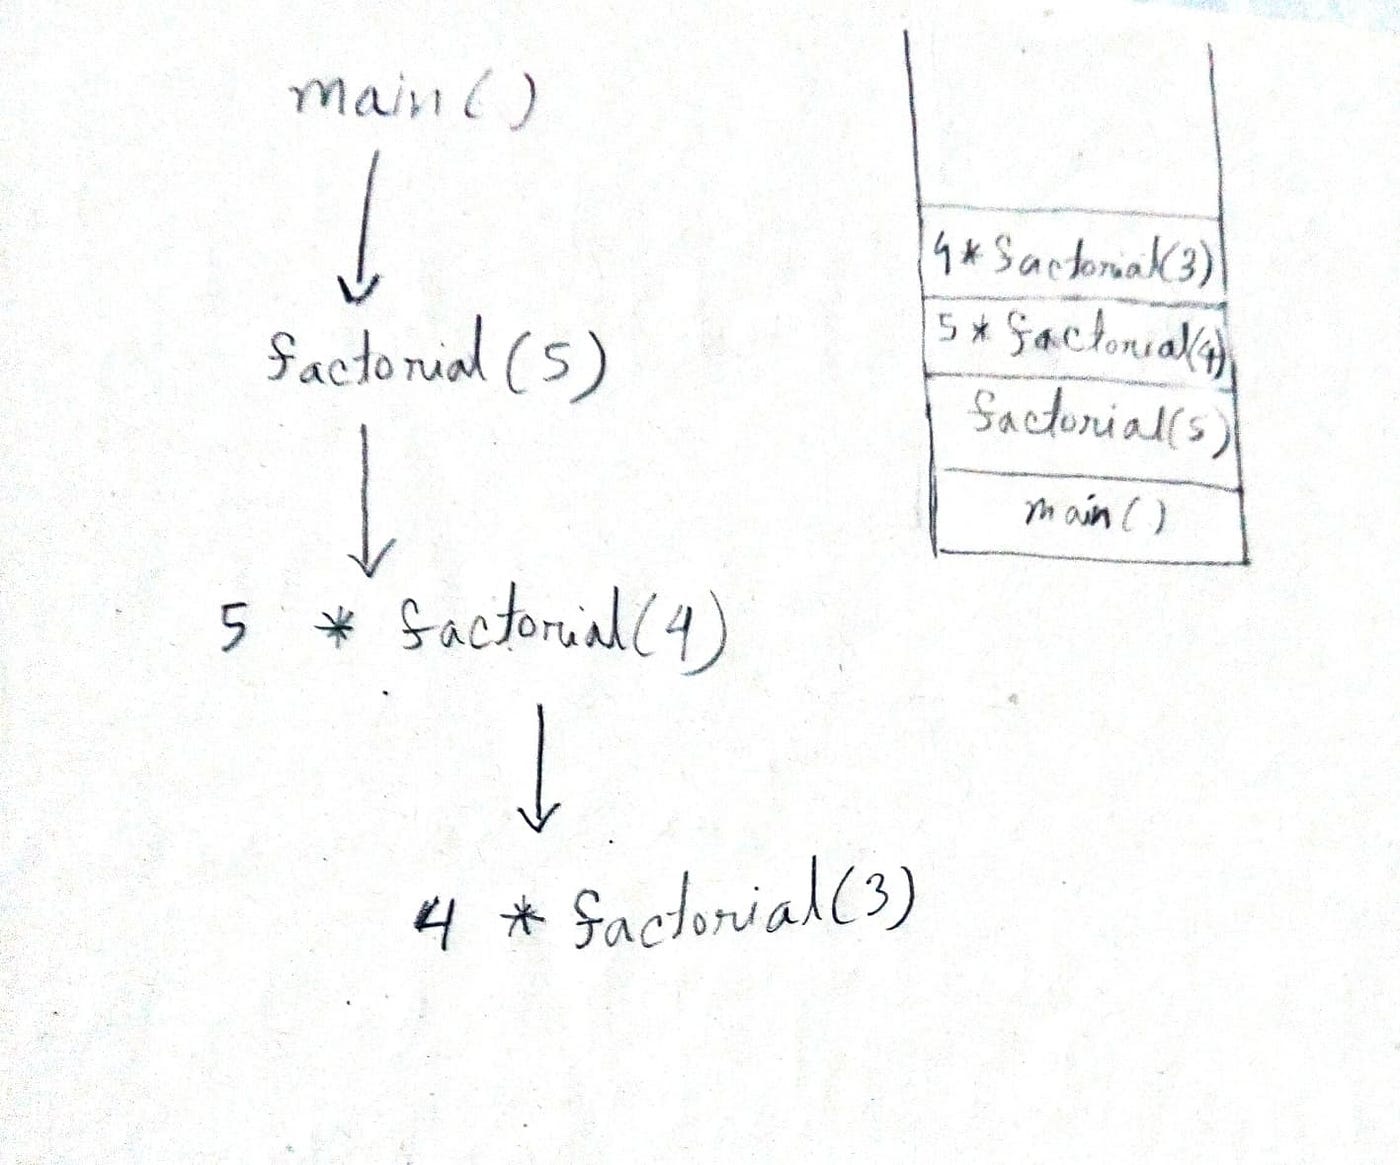 main()
factorial(5)
5 * factorial(4)
4 * factorial(3)
4 * factorial(3)
5 * factorial(4)
factorial(5)
main()